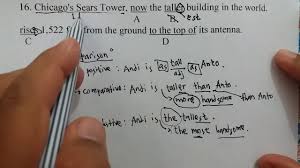 16. Chicago's Sears Tower, now the tall building in the world.
A B est
rises 1,522 from the ground to the top of its antenna.
C D
positive : Andi is as tall as Anto
adj
comparative : Andi is taller than Anto
more handsome than Anto
Andi is the tallest
the most handsome